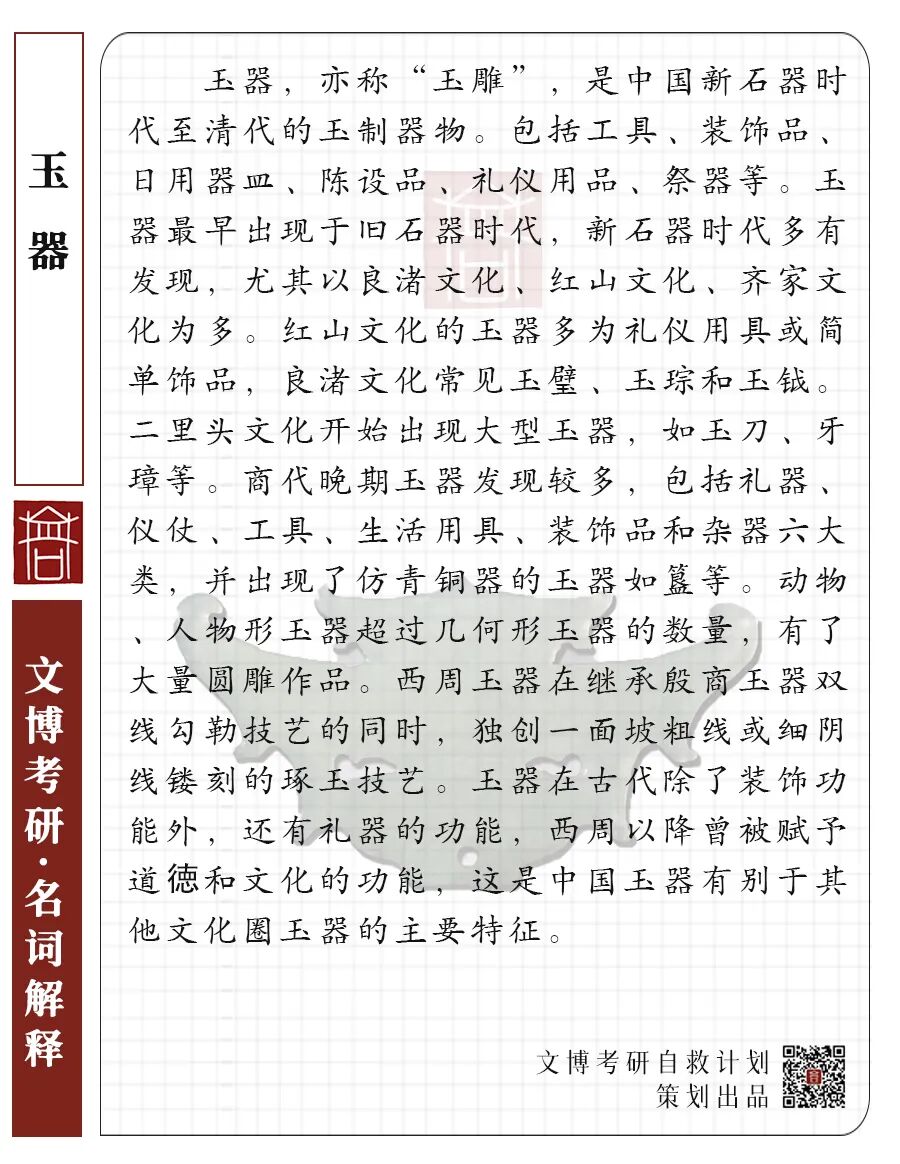 玉器
文博考研·名词解释
玉器，亦称“玉雕”，是中国新石器时
代至清代的玉制器物。包括工具、装饰品、
日用器皿、陈设品、礼仪用品、祭器等。玉
器最早出现于旧石器时代，新石器时代多有
发现，尤其以良渚文化、红山文化、齐家文
化为多。红山文化的玉器多为礼仪用具或简
单饰品，良渚文化常见玉璧、玉琮和玉钺。
二里头文化开始出现大型玉器，如玉刀、牙
璋等。商代晚期玉器发现较多，包括礼器、
仪仗、工具、生活用具、装饰品和杂器六大
类，并出现了仿青铜器的玉器如簋等。动物
、人物形玉器超过几何形玉器的数量，有了
大量圆雕作品。西周玉器在继承殷商玉器双
线勾勒技艺的同时，独创一面坡粗线或细阴
线镂刻的琢玉技艺。玉器在古代除了装饰功
能外，还有礼器的功能，西周以降曾被赋予
道徳和文化的功能，这是中国玉器有别于其
他文化圈玉器的主要特征。
文博考研自救计划
策划出品